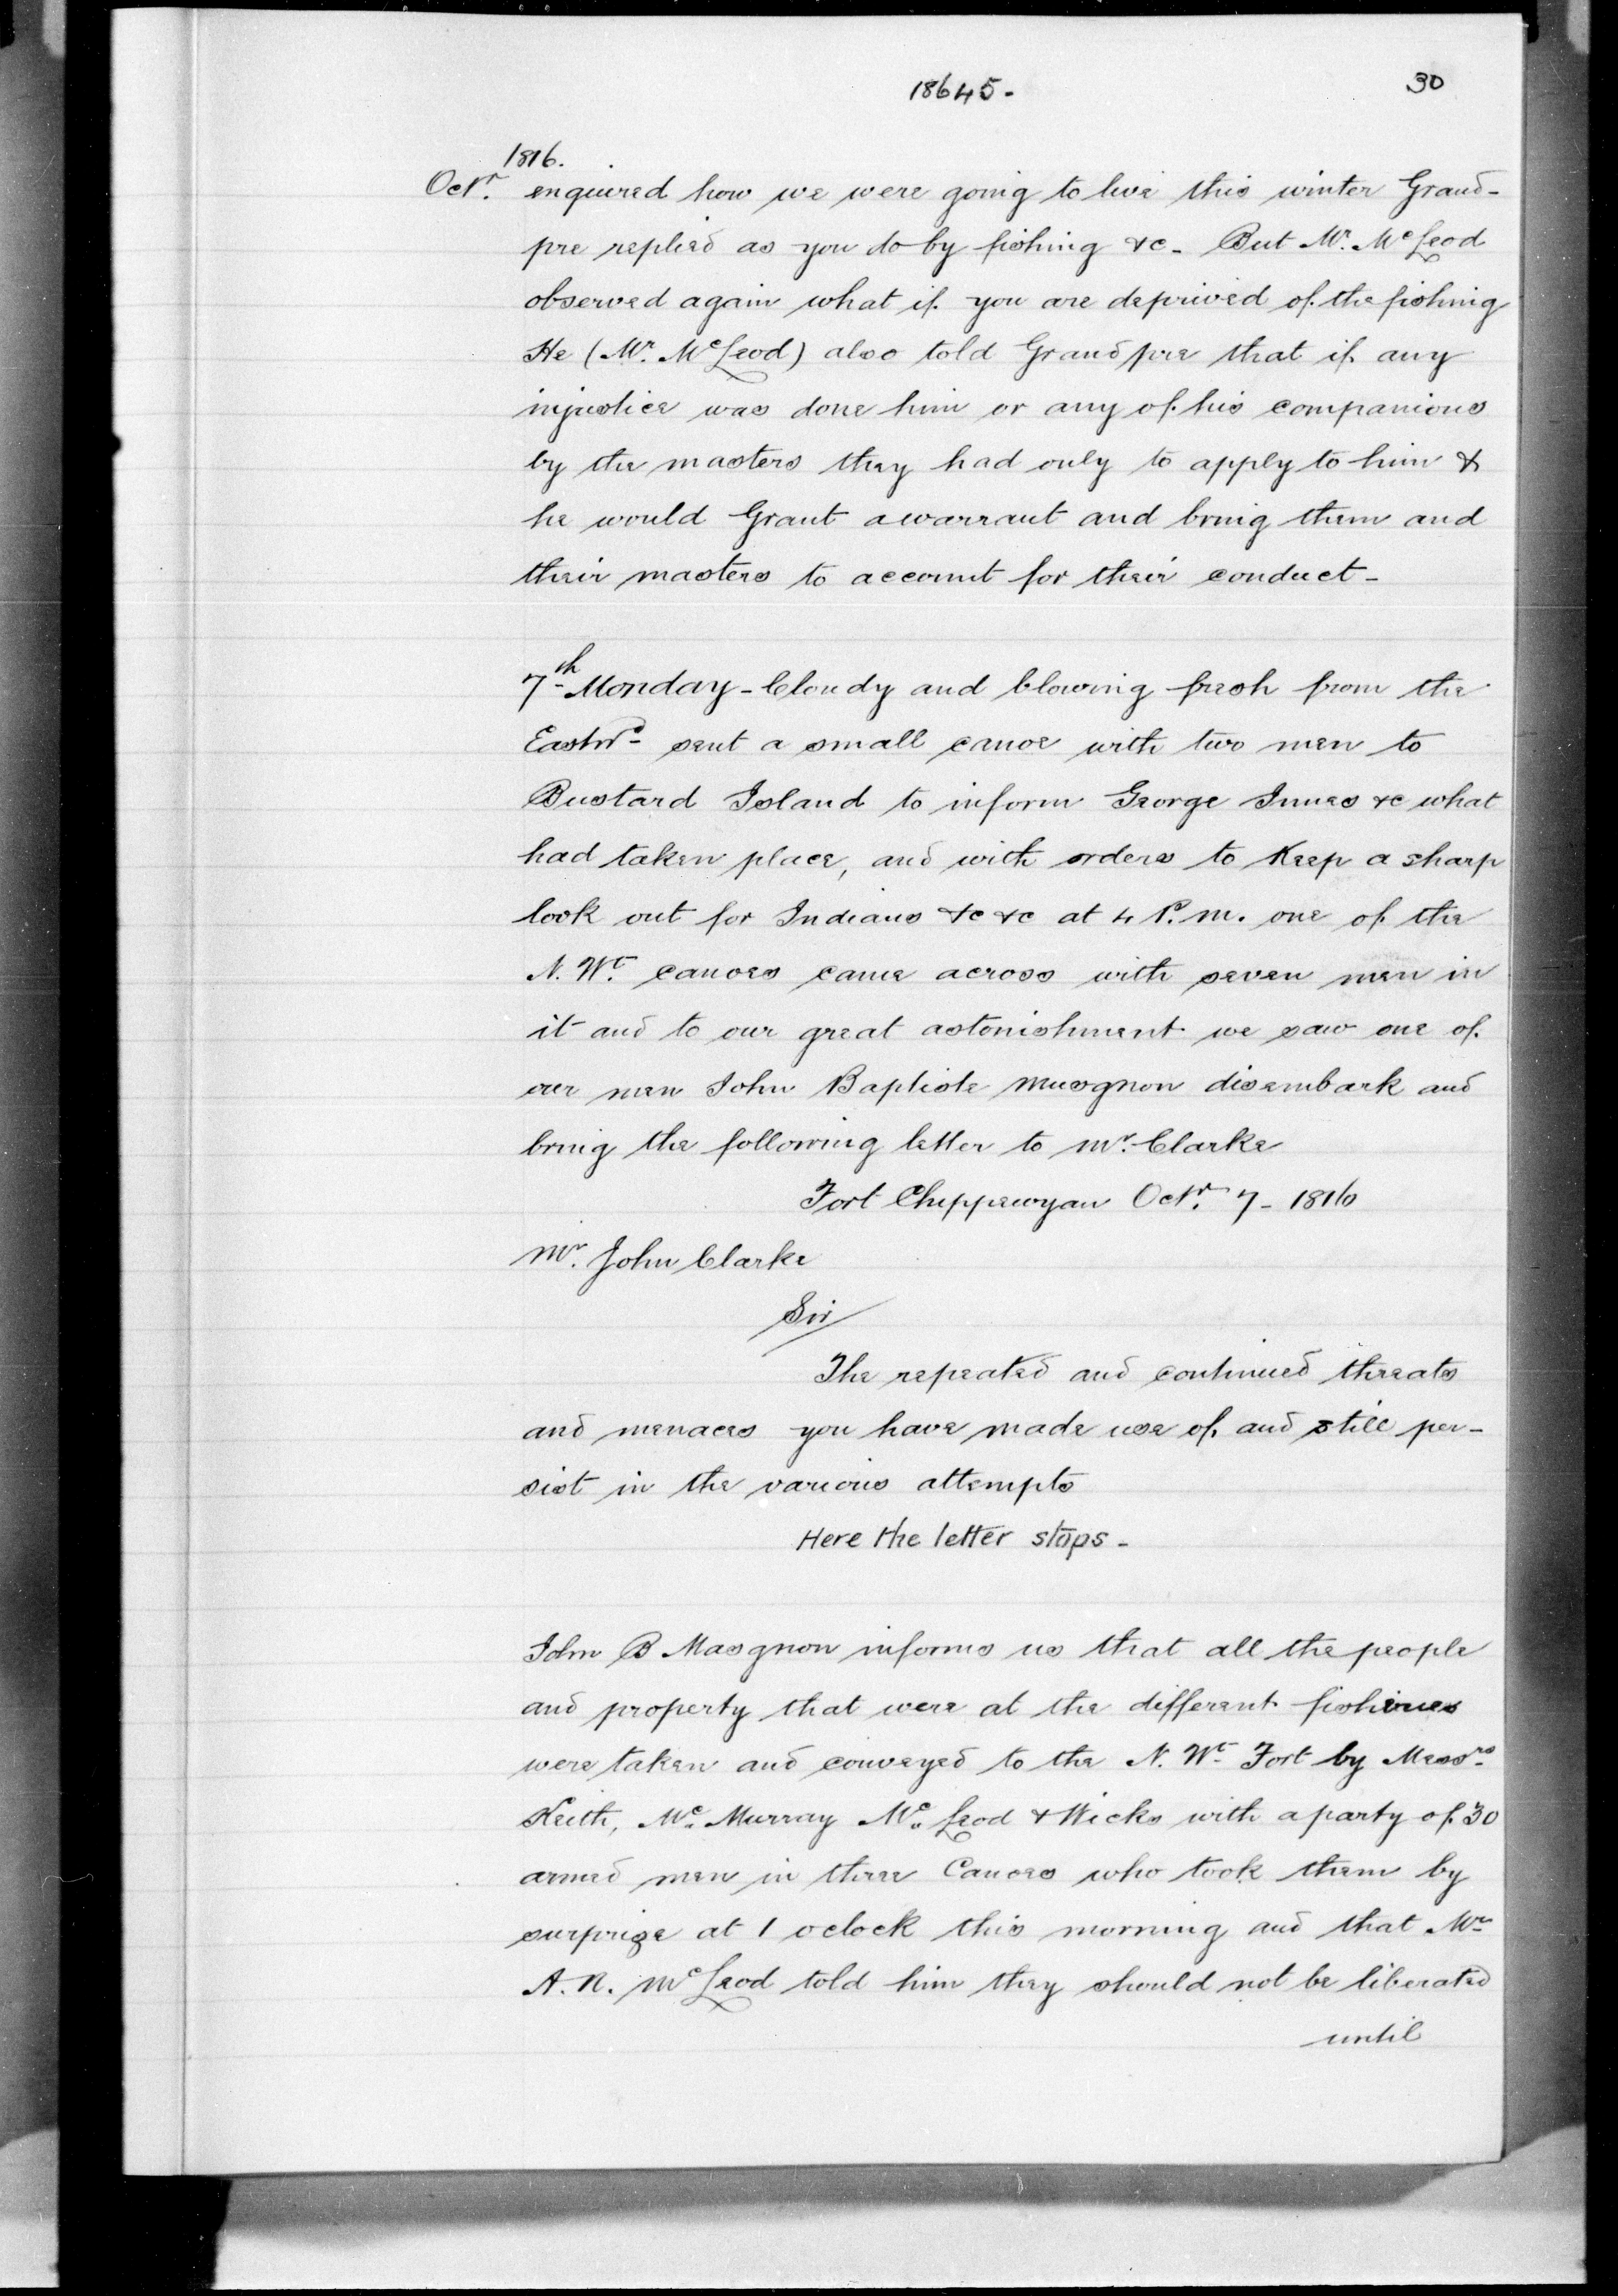 18645.
30
1816.
Octr. enquired how we were going to live this winter Grand-
pre replied as you do by fishing &c- But Mr. McLeod
observed again what if you are deprived of the fishing
He (Mr. McLeod) also told Grandpre that if any
injustice was done him or any of his companions
by the masters they had only to apply to him &
he would Grant a warrant and bring them and
their masters to account for their conduct-
7th Monday - Cloudy and blowing fresh from the
Eastwd- sent a small canoe with two men to
Bustard Island to inform George Innes &c what
had taken place, and with orders to Keep a sharp
look out for Indians &c &c at 4 P.m. one of the
N. Wt. canoes came across with seven men in
it and to our great astonishment we saw one of
our men John Baptiste Musgnon disembark and
bring the following letter to Mr. Clarke
Fort Chippewyan Octr. 7 - 1816
Mr. John Clarke
Sir/
The repeated and continued threats
and menaces you have made use of and still per-
sist in the various attempts
Here the letter stops-
John B Masgnon informs us that all the people
and property that were at the different fisheries
were taken and conveyed to the N. Wt. Fort by Messrs
Keith, Mc. Murray Mc. Leod & Wicks with a party of 30
armed men in three Canoes who took them by
surprize at 1 oclock this morning and that Mr
A. N. McLeod told him they should not be liberated
until